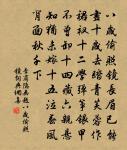 八歲偷照鏡長眉已能
畫十歲去踏青芙蓉作
裙衩十二學彈箏銀甲
不曾卸十四藏六親懸
知猶未嫁十五泣春風
背面秋千下
李商隱無題八歲偷照
鏡